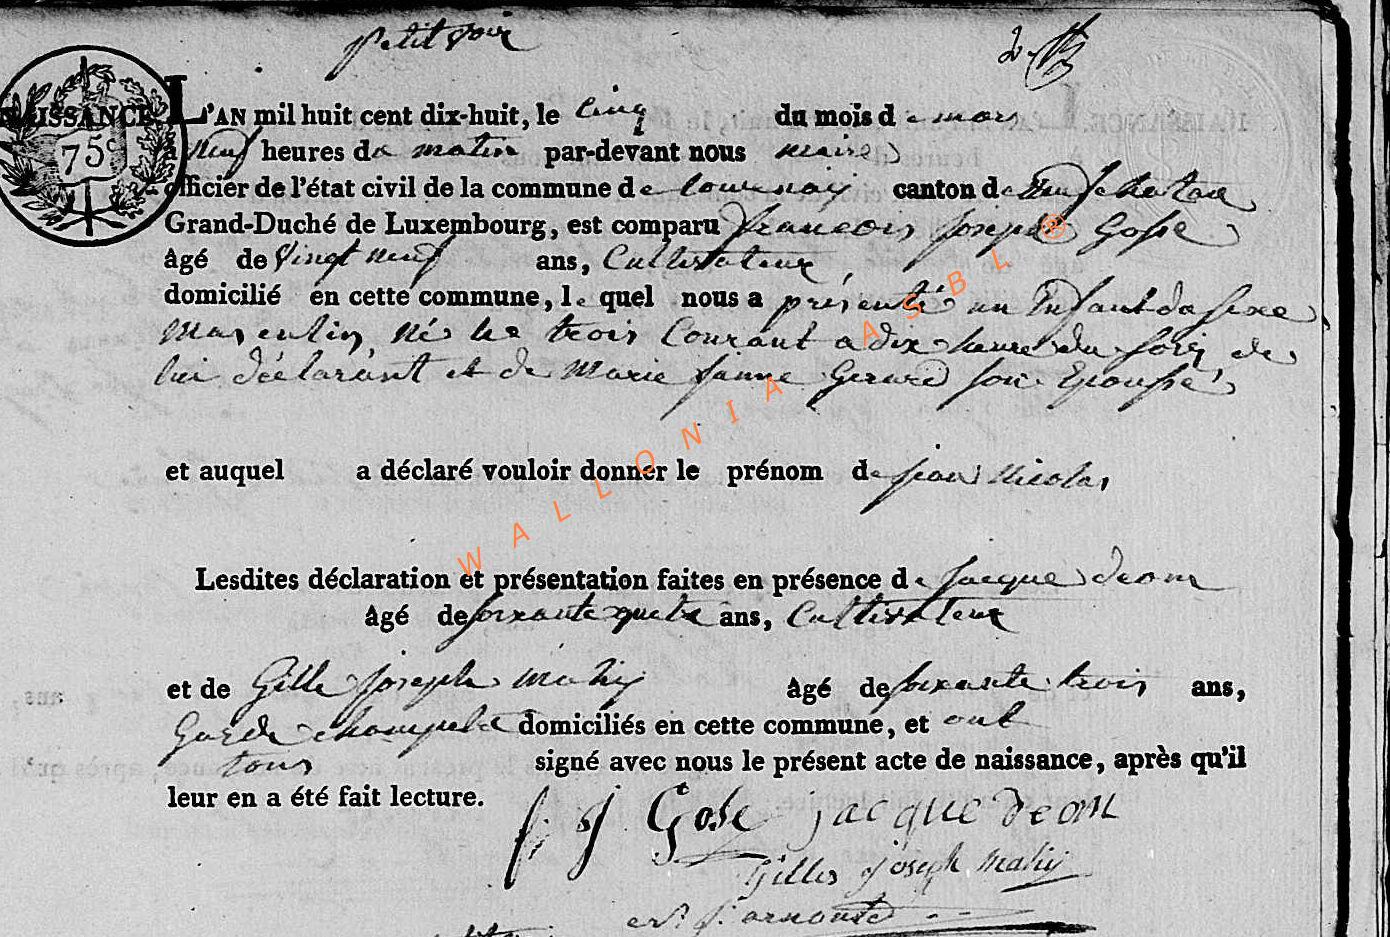 petit voir
NAISSANCE. L'AN mil huit cent dix-huit, le cinq du mois de mars
à neuf heures du matin par-devant nous maire
officier de l'état civil de la commune de tournay canton de neufchateau
Grand-Duché de Luxembourg, est comparu francois joseph Gosse
75c
âgé de vingt neuf ans, Cultivateur,
domicilié en cette commune, le quel nous a présenté un Enfant du sexe
Masculin, né le trois Courant a dix heure du soir, de
lui déclarant et de Marie janne Gerard son Epousse,
et auquel a déclaré vouloir donner le prénom de jean nicolas
Lesdites déclaration et présentation faites en présence de jacque deom
âgé de soixante quatre ans, Cultivateur
et de Gille joseph mahy âgé de soixante trois ans,
Garde champetre domiciliés en cette commune, et ont
tous signé avec nous le présent acte de naissance, après qu'il
leur en a été fait lecture.
f j Gosse jacque deom
Gilles joseph mahy
arnould
WALLONIA ASBL ®